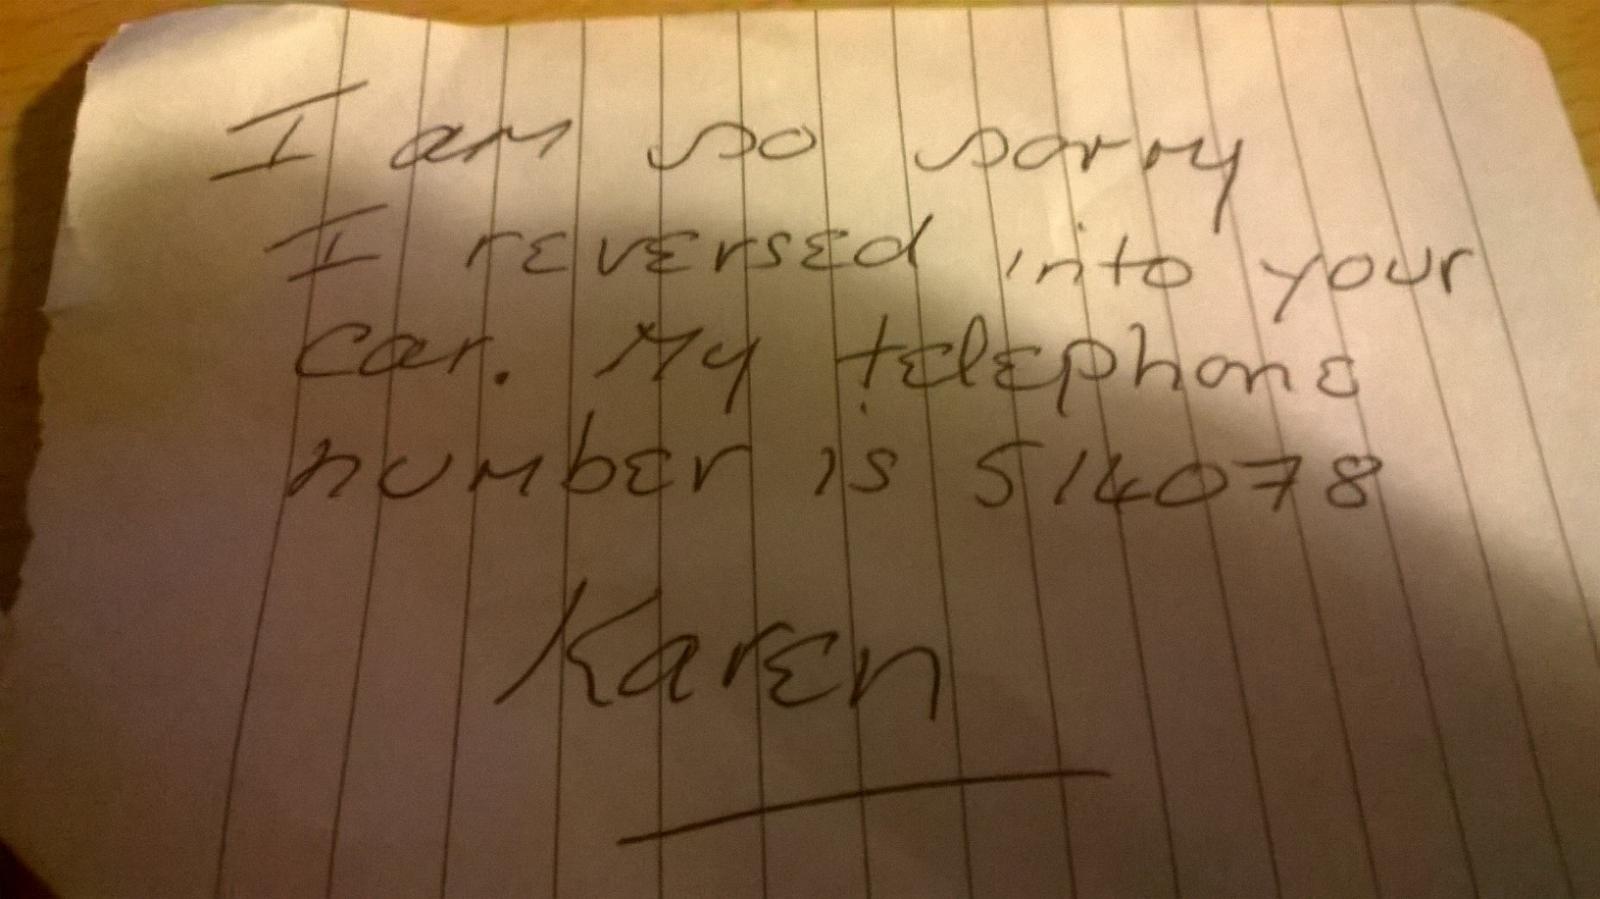 I am so sorry
I reversed into your
car. My telephone
number is 514078
Karen